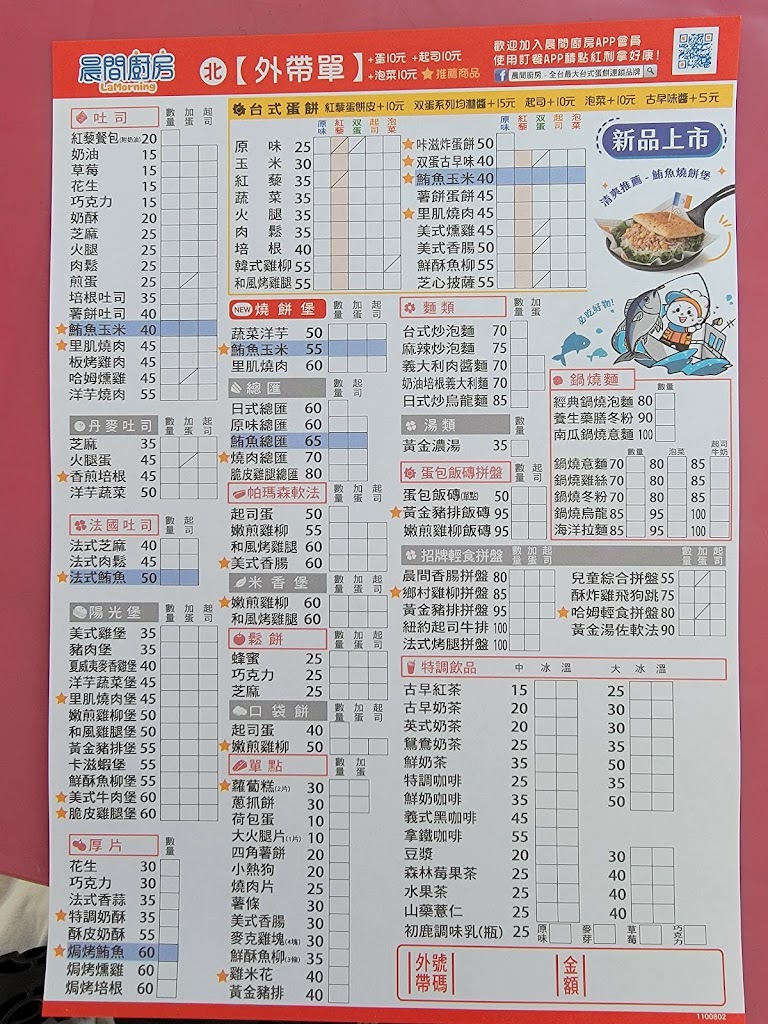 晨間廚房
LaMorning
北【外帶單】
+蛋10元 +起司10元
+泡菜10元 ★推薦商品
歡迎加入晨間廚房APP會員
使用訂餐APP購點紅利拿好康!
晨間廚房 - 全台最大台式蛋餅連鎖品牌
吐司 數量 加蛋 起司
紅藜餐包(附奶油) 20
奶油 15
草莓 15
花生 15
巧克力 15
奶酥 20
芝麻 25
火腿 25
肉鬆 25
煎蛋 25
培根吐司 35
薯餅吐司 40
★鮪魚玉米 40
★里肌燒肉 45
板烤雞肉 45
哈姆燻雞 45
洋芋燒肉 55
丹麥吐司 數量 加蛋 起司
芝麻 35
火腿蛋 45
★香煎培根 45
洋芋蔬菜 50
法國吐司 數量 加蛋 起司
法式芝麻 40
法式肉鬆 45
★法式鮪魚 50
陽光堡 數量 加蛋 起司
美式雞堡 35
豬肉堡 35
夏威夷麥香雞堡 40
洋芋蔬菜堡 45
★里肌燒肉堡 45
嫩煎雞柳堡 50
和風雞腿堡 50
黃金豬排堡 55
卡滋蝦堡 55
鮮酥魚柳堡 55
★美式牛肉堡 60
★脆皮雞腿堡 60
厚片 數量
花生 30
巧克力 30
法式香蒜 35
★特調奶酥 35
酥皮奶酥 55
★焗烤鮪魚 60
焗烤燻雞 60
焗烤培根 60
台式蛋餅 紅藜蛋餅皮+10元 双蛋系列均灑醬+15元 起司+10元 泡菜+10元 古早味醬+5元
原味 紅藜 双蛋 起司 泡菜
原味 25
玉米 30
紅藜 35
蔬菜 35
火腿 35
肉鬆 35
培根 40
韓式雞柳 55
和風烤雞腿 55
原味 紅藜 双蛋 起司 泡菜
★咔滋炸蛋餅 50
★双蛋古早味 40
★鮪魚玉米 40
薯餅蛋餅 45
★里肌燒肉 45
美式燻雞 45
美式香腸 50
鮮酥魚柳 55
芝心披薩 55
新品上市
清爽推薦 - 鮪魚燒餅堡
必吃好物!
NEW 燒餅堡 數量 加蛋 起司
蔬菜洋芋 50
★鮪魚玉米 55
里肌燒肉 60
總匯 數量 加蛋 起司
日式總匯 60
原味總匯 60
鮪魚總匯 65
★燒肉總匯 70
脆皮雞腿總匯 80
帕瑪森軟法 數量 加蛋 起司
起司蛋 50
嫩煎雞柳 55
和風烤雞腿 60
★美式香腸 60
米香堡 數量 加蛋 起司
★嫩煎雞柳 60
和風烤雞腿 60
鬆餅 數量 加蛋 起司
蜂蜜 25
巧克力 25
芝麻 25
口袋餅 數量 加蛋 起司
起司蛋 40
★嫩煎雞柳 50
單點 數量 加蛋
★蘿蔔糕(2片) 30
蔥抓餅 30
荷包蛋 10
大火腿片(1片) 10
四角薯餅 20
小熱狗 20
燒肉片 25
薯條 30
美式香腸 30
麥克雞塊(4塊) 30
鮮酥魚柳(3條) 35
★雞米花 40
黃金豬排 40
麵類 數量 加蛋
台式炒泡麵 70
麻辣炒泡麵 75
義大利肉醬麵 70
奶油培根義大利麵 70
日式炒烏龍麵 85
湯類 數量
黃金濃湯 35
蛋包飯磚拼盤 數量 起司
蛋包飯磚(單點) 50
★黃金豬排飯磚 95
嫩煎雞柳飯磚 95
鍋燒麵
數量
經典鍋燒泡麵 80
養生藥膳冬粉 90
南瓜鍋燒意麵 100
數量 泡菜 起司牛奶
鍋燒意麵 70 80 85
鍋燒雞絲 70 80 85
鍋燒冬粉 70 80 85
鍋燒烏龍 85 95 100
海洋拉麵 85 95 100
招牌輕食拼盤 數量 加蛋 起司
晨間香腸拼盤 80
★鄉村雞柳拼盤 85
黃金豬排拼盤 95
紐約起司牛排 100
法式烤腿拼盤 100
數量 加蛋 起司
兒童綜合拼盤 55
酥炸雞飛狗跳 75
★哈姆輕食拼盤 80
黃金湯佐軟法 90
特調飲品 中 冰 溫 大 冰 溫
古早紅茶 15 25
古早奶茶 20 30
英式奶茶 20 30
鴛鴦奶茶 25 35
鮮奶茶 35 50
特調咖啡 25 35
鮮奶咖啡 35 50
義式黑咖啡 45
拿鐵咖啡 55
豆漿 20 30
森林莓果茶 25 40
水果茶 25 40
山藥薏仁 25 40
初鹿調味乳(瓶) 25 原味 麥芽 草莓 巧克力
外帶號碼 金額
1100802